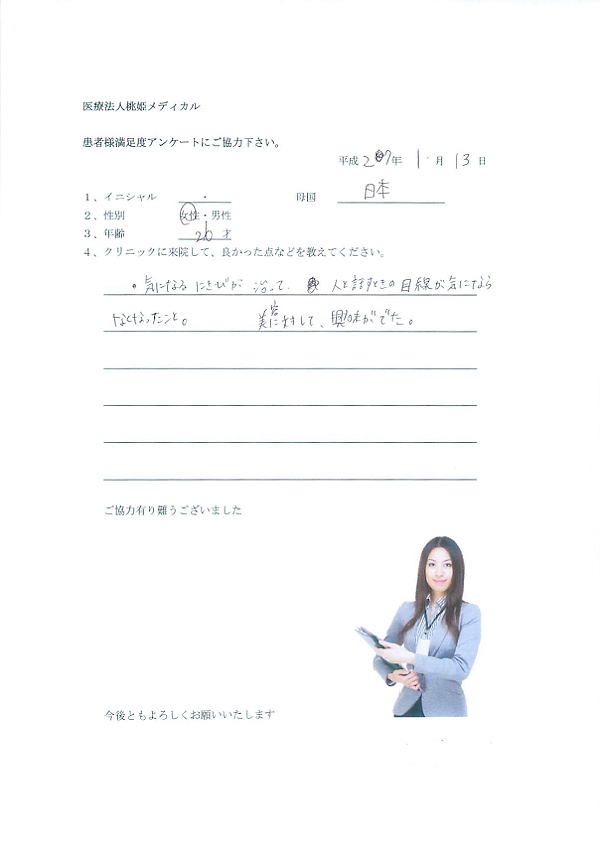 医療法人桃姫メディカル
患者様満足度アンケートにご協力下さい。
平成 27年 1月 13日
1、イニシャル ・ 母国 日本
2、性別 女性・男性
3、年齢 26 才
4、クリニックに来院して、良かった点などを教えてください。
・気になるにきびが 治って、 人と話すときの目線が気になら
なくなったこと。 美容に対して、興味がでた。
ご協力有り難うございました
今後ともよろしくお願いいたします